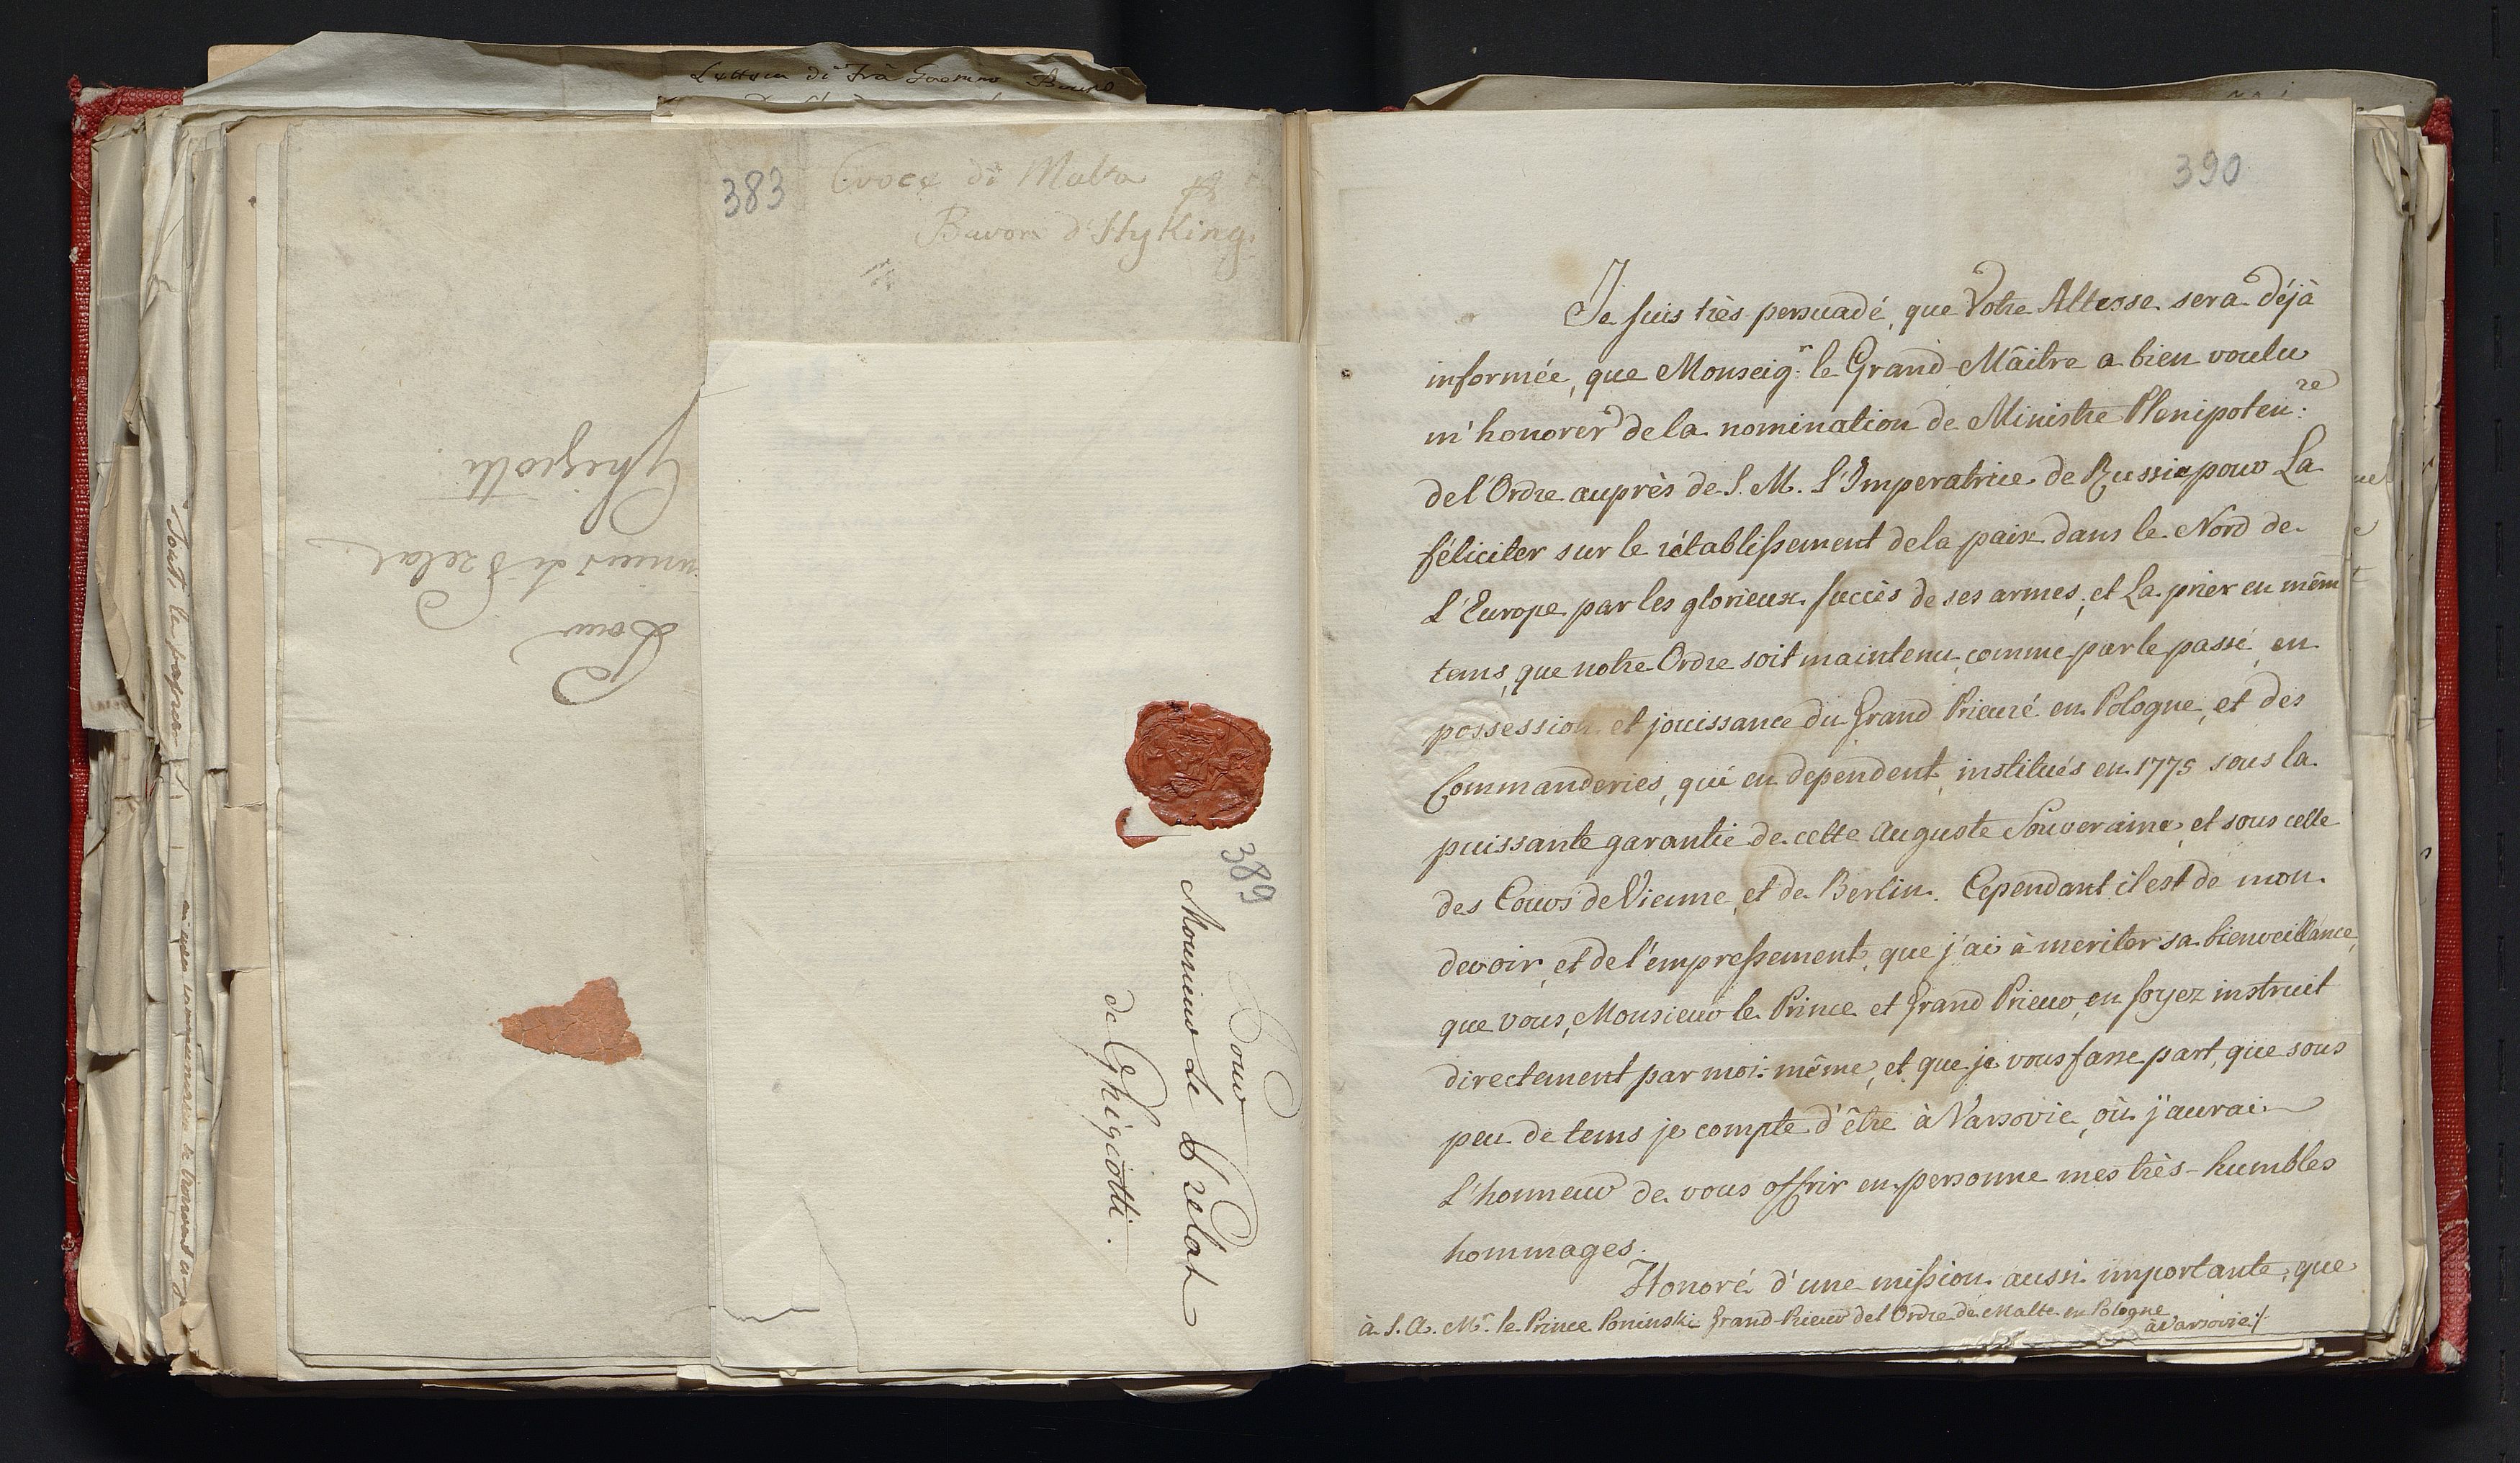 383
Croce di Malta
Baron d'Hyking
Pour
Monsieur de Prelat
de Ghigiotti.
389
Pour
Prelat
Ghigiotti
390
Je suis très persuadé, que Votre Altesse sera déjà
informée, que Monseig.r le Grand-Mâitre a bien voulu
m'honorer de la nomination de Ministre Plenipoten.re
de l'Ordre auprès de S. M. L'Imperatrice de Russie pour La
féliciter sur le rétablissement de la paix dans le Nord de
L'Europe par les glorieux succès de ses armes, et La prier en mêm
tems, que notre Ordre soit maintenu, comme par le passé, en
possession et jouissance du Grand Prieuré en Pologne, et des
Commanderies, qui en dependent, institués en 1775 sous la
puissante garantie de cette Auguste Souveraine, et sous celle
des Cours de Vienne, et de Berlin. Cependant il est de mon
devoir, et de l'empressement, que j'ai à meriter sa bienveillance,
que vous, Monsieur le Prince et Grand Prieur, en soyez instruit
directement par moi-même, et que je vous fasse part, que sous
peu de tems je compte d'être à Varsovie, où j'aurai
L'honneur de vous offrir en personne mes très-humbles
hommages.
Honoré d'une mission aussi importante, que
à S. A. M.r le Prince Poninski Grand-Prieur de l'Ordre de Malte en Pologne
à Varsovie ./.